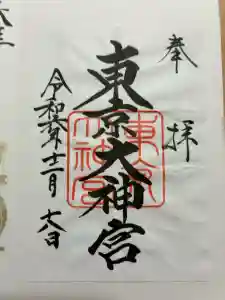 奉拝
東京大神宮
東京大神宮
令和六年十二月十六日